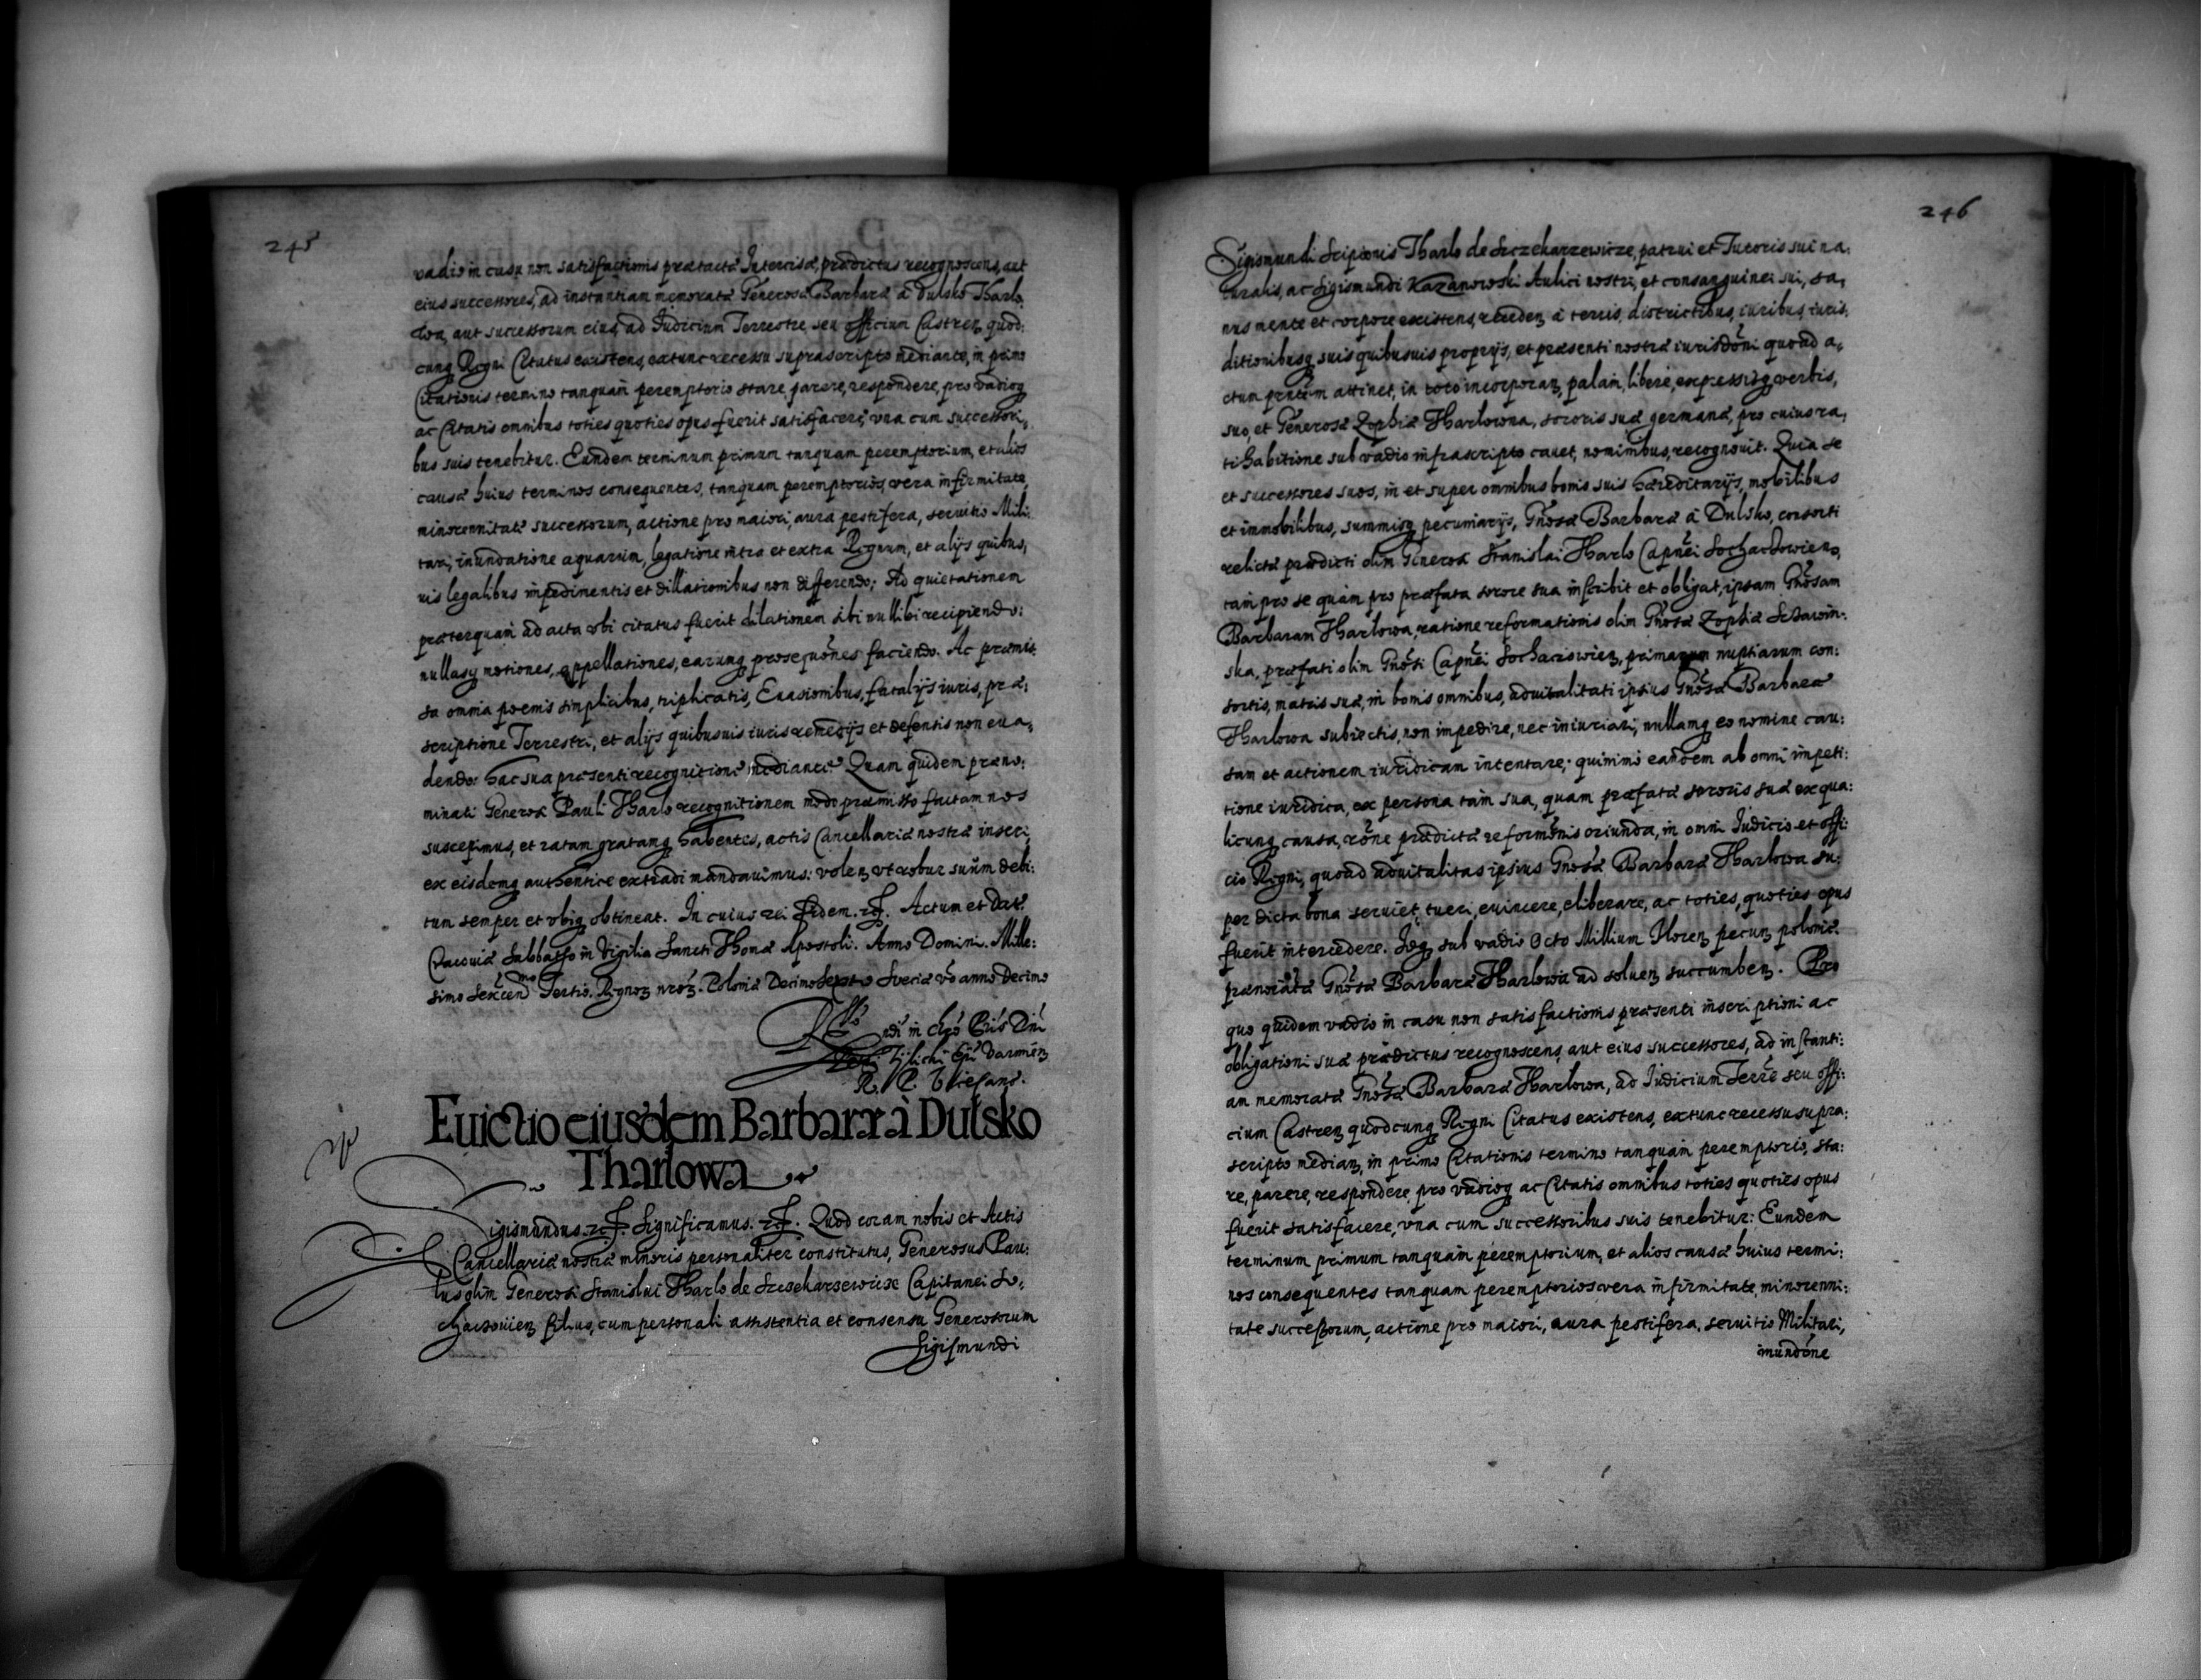 245
vadio in casu non satisfactionis prætactæ Intercisæ, prædictus recognoscens, aut
eius successores, ad instantiam memoratæ Generosæ Barbaræ à Dulsko Tharlo,
wa, aut successorum eius, ad Iudicium Terrestre, seu officium Castreñ, quod:
cunq Regni Citatus existens, extunc recessu suprascripto mediante, in primo
Citationis termino tanquam peremptorio stare, parere, respondere, pro vadioq
ac Citatis omnibus toties quoties opus fuerit satisfacere, vna cum successori,
bus suis tenebitur. Eundem terminum primum tanquam peremptorium, et alios
causæ huius terminos consequentes, tanquam peremptorios, vera infirmitate,
minorennitate successorum, actione pro maiori, aura pestifera, seruitio Mili:
tari, inundatione aquarum, legatione intra et extra Regnum, et alijs quibus,
uis legalibus impedimentis et dillationibus non differendo; Ad quietationem
præterquam ad acta vbi citatus fuerit dilationem sibi nullibi recipiendo:
nullasq motiones, appellationes, earunq prosequōnes faciendo. Ac præmis:
sa omnia poenis simplicibus, triplicatis, Euasionibus, fatalijs iuris, præ:
scriptione Terrestri, et alijs quibusuis iuris remedijs et defensis non eua,
dendo: hac sua præsenti recognitione mediante. Quam quidem præno:
minati Generosi Pauli Tharlo recognitionem modo præmisso factam nos
suscepimus, et ratam gratamq habentes, actis Cancellariæ nostræ inseri,
ex eisdemq authentice extradi mandauimus: voleñ vt robur suum debi:
tum semper et vbiq obtineat. In cuius rei fidem. Actum et Dat.
Cracouiæ Sabbatho in Vigilia Sancti Thomæ Apostoli. Anno Domini. Mille:
simo Sexcenmo Tertio. Regnoȝ nroȝ. Poloniæ Decimo Septo Sueciæ vō anno Decimo
ndi in chrō Pris Dni
Petri Tylicki Epi Varmień
R. P. Vicecanc.
Euictio eiusdem Barbaræ à Dulsko
Tharlowa
Sigismundus. Significamus. Quod coram nobis et Actis
Cancellariæ nostræ minoris personaliter constitutus, Generosus Pau:
lus olim Generosi Stanislai Tharlo de Szczekarzewicze Capitanei So,
chaczouieñ filius, cum personali assistentia et consensu Generosorum
Sigismundi
246
Sigismundi Scipionis Tharlo de Szczekarzewicze, patrui et Tutoris sui na:
turalis, ac Sigismundi Kazanowski Aulici nostri, et consanguinei sui, sa,
nus mente et corpore existens, recedeñ à terris, districtibus, iuribus, iuris:
ditionibusq suis quibusuis proprijs, et præsenti nostræ iurisdōni quoad a,
ctum pntem attinet, in toto incorporañ, palam, libere, expressisq verbis,
suo, et Generosæ Zophiæ Tharlowna, sororis suæ germanæ, pro cuius ra,
tihabitione sub vadio infrascripto cauet, nominibus, recognouit. Quia se
et successores suos, in et super omnibus bonis suis hæreditarijs, mobilibus
et immobilibus, summisq pecuniarijs, Gnōsæ Barbaræ à Dulsko, consorti
relictæ prædicti olim Generosi Stanislai Tharlo Capnēi Sochaczowieñ,
tam pro se quam pro præfata sorore sua inscribit et obligat, ipsam Gnōsam
Barbaram Tharlowa, ratione reformationis olim Gnōsæ Zophiæ
ska, præfati olim Gnōsi Capnēi Sochaczowieñ, primarum nuptiarum con:
sortis, matris suæ, in bonis omnibus, aduitalitati ipsius Gnōsæ Barbaræ
Tharlowa subiectis, non impedire, nec iniuriari, nullamq eo nomine cau:
sam et actionem iuridicam intentare; quinimo eandem ab omni impeti:
tione iuridica, ex persona tam sua, quam præfatæ sororis suæ ex qua:
licunq causa, rōne prædictæ reformōnis oriunda, in omni Iudicio et offi:
cio Regni, quoad aduitalitas ipsius Gnōsæ Barbaræ Tharlowa su:
per dicta bona seruiet, tueri, euincere, eliberare, ac toties, quoties opus
fuerit intercedere. Idq sub vadio Octo Millium Floreñ pecuñ polonic.
prænōiatæ Gnōsæ Barbaræ Tharlowa ad soluen succumbeñ. Pro
quo quidem vadio in casu non satisfactionis præsenti inscriptioni ac
obligationi suæ prædictus recognoscens, aut eius successores, ad instanti:
am memoratæ Gnōsæ Barbaræ Tharlowa, ad Iudicium Terre seu offi:
cium Castreñ quodcunq Regni Citatus existens, extunc recessu supra:
scripto mediañ, in primo Citationis termino tanquam peremptorio, sta:
re, parere, respondere, pro vadioq ac Citatis omnibus toties quoties opus
fuerit satisfacere, vna cum successoribus suis tenebitur: Eundem
terminum primum tanquam peremptorium, et alios causæ huius termi:
nos consequentes tanquam peremptorios, vera infirmitate, minorenni:
tate successorum, actione pro maiori, aura pestifera, seruitio Militari,
inundōne